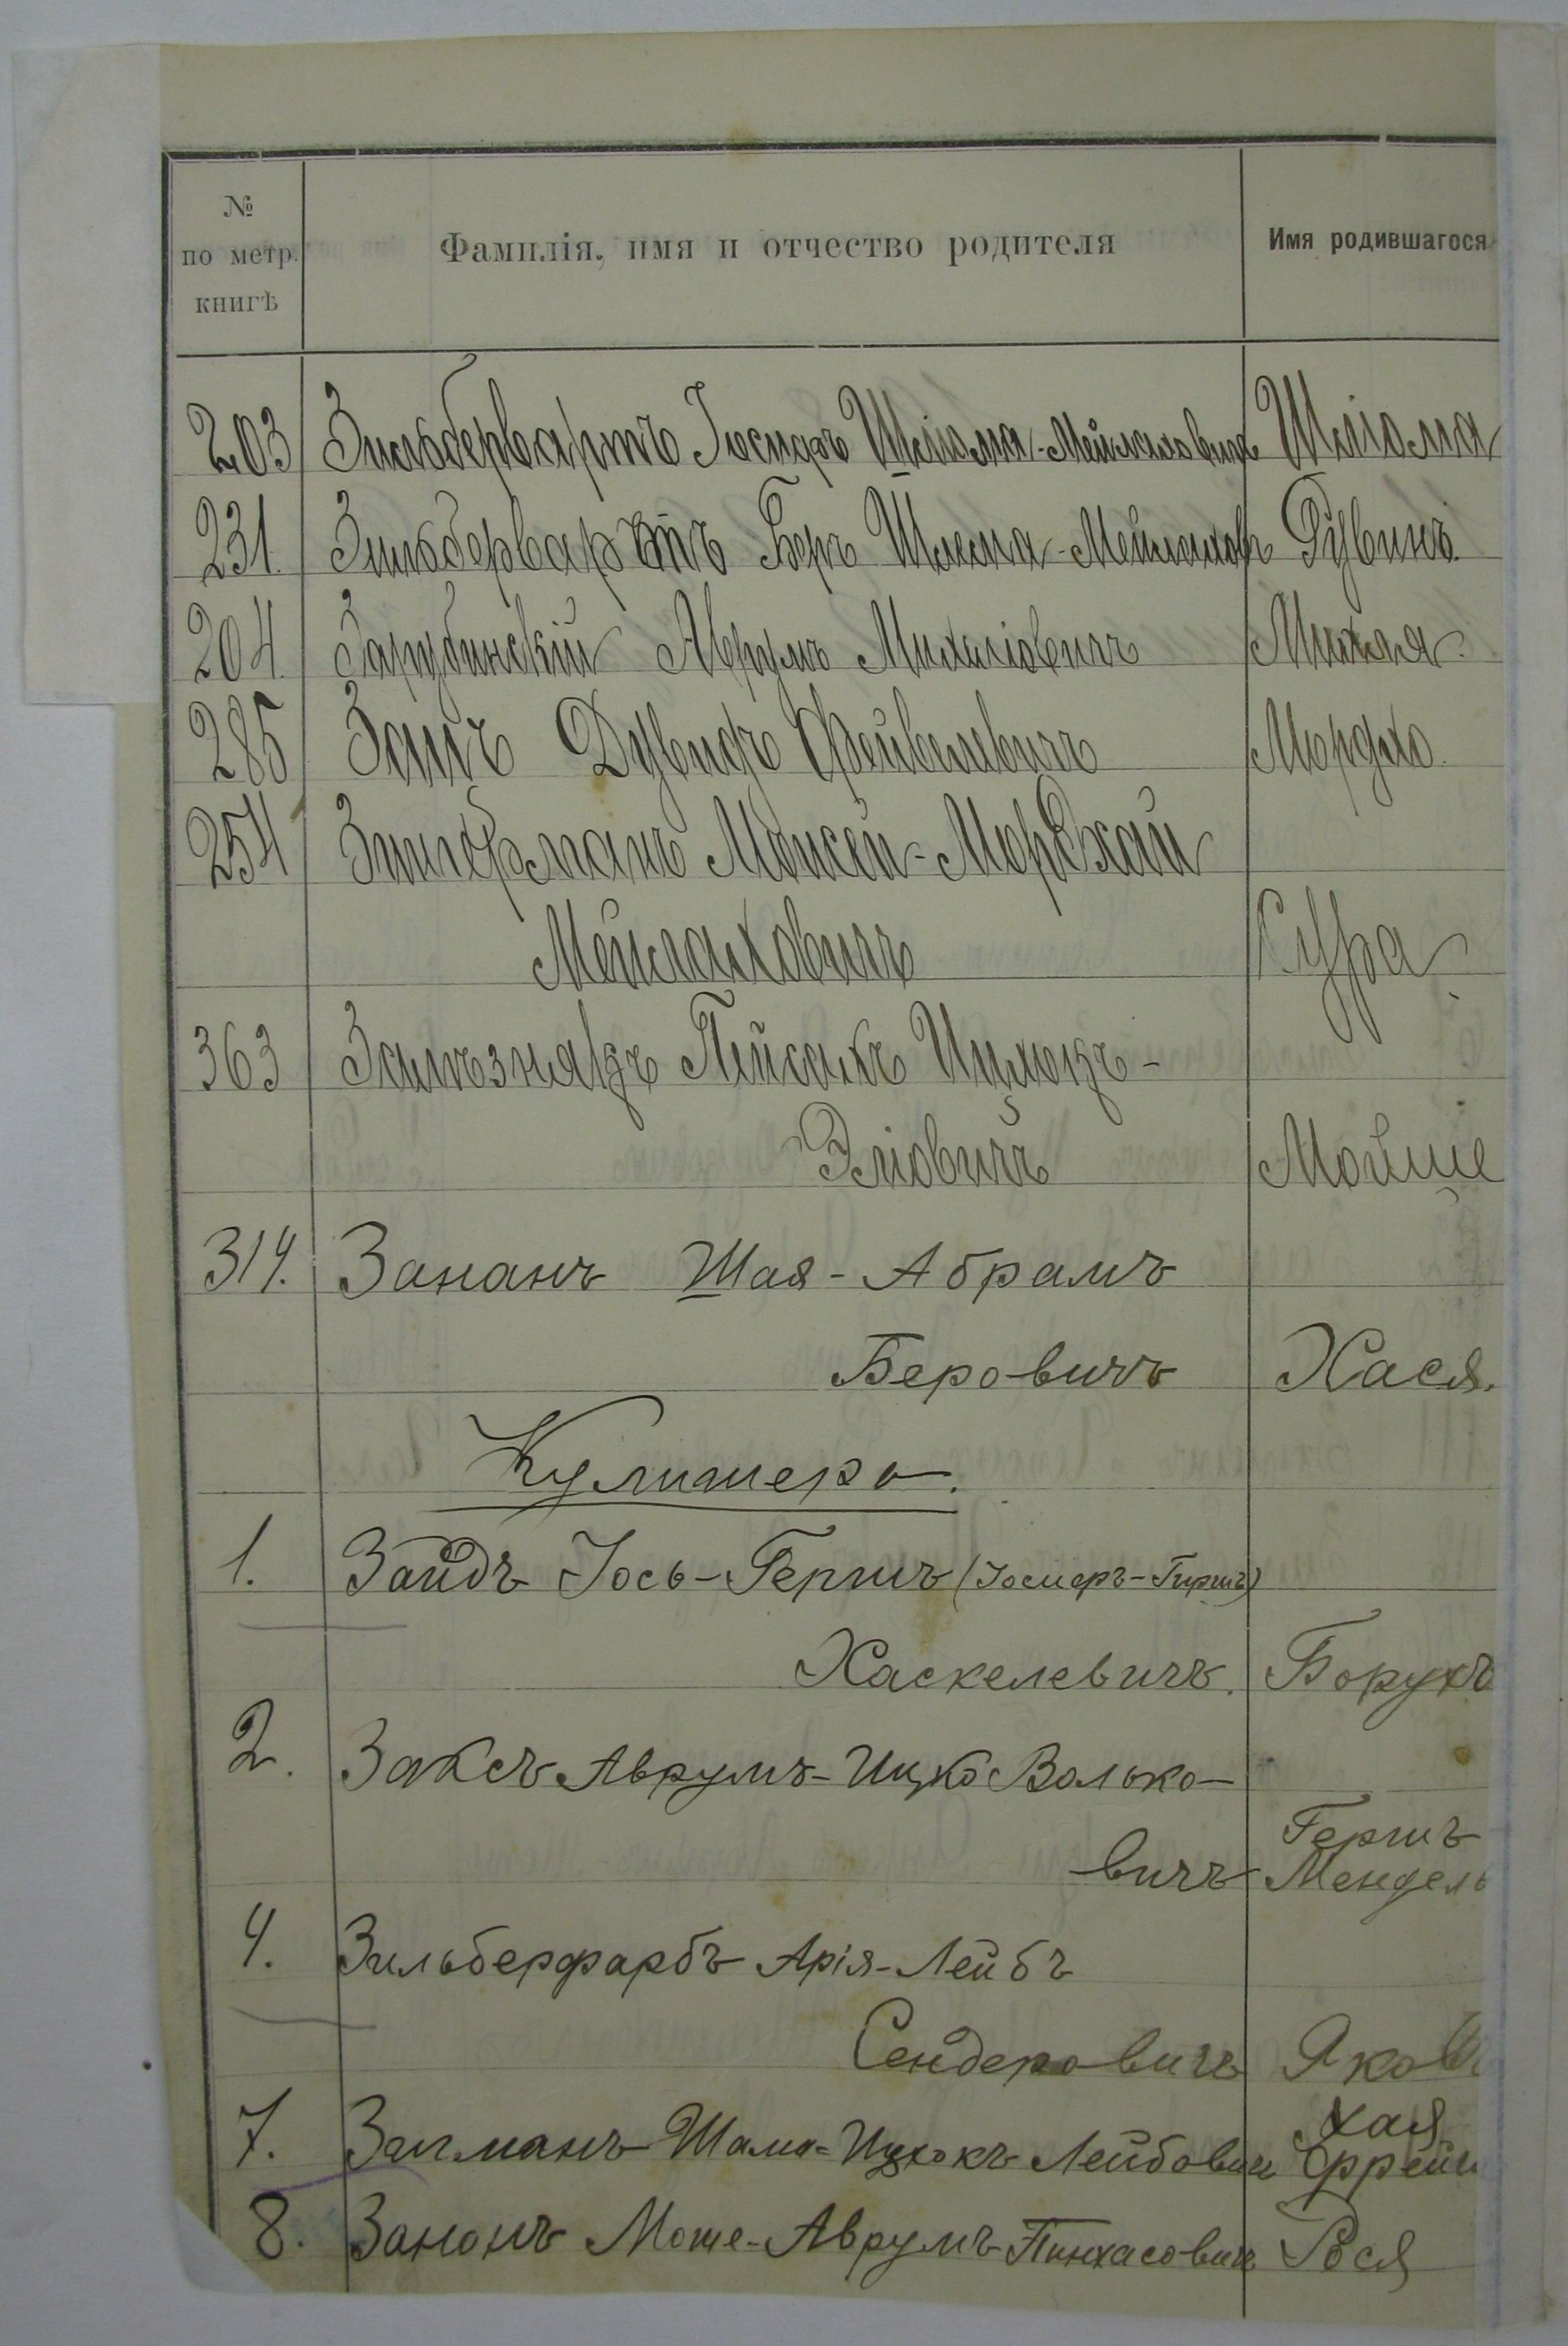 №
по метр.
книгѣ
Фамилія, имя и отчество родителя
Имя родившагося
203 Зильбервартъ Іосифъ Шліома-Мейлаховичъ Шліома
231. Зильбервартъ Беръ Шлема-Мейлахов Рувинъ.
204. Зарубинскій Аврумъ Михеліовичъ Михля.
285 Заицъ Дувидъ Фейвелевичъ Мордко.
254 Зингерманъ Моисей-Мордхай
Мейлаховичъ Сура
363 Зализнякъ Пейсахъ Ицхокъ-
Эліовичъ Мойше
314. Зананъ Шая-Абрамъ
Беровичъ Хася.
1. Зайдъ Іось-Гершъ (Іосифъ-Гиршъ)
Хаскелевичъ. Борухъ
2. Заксъ Аврумъ-Ицко Волько-
вичъ Гершъ
Мендель
4. Зильберфарбъ Арія-Лейбъ
Сендеровичъ Яковъ
7. Шама-Ицхокъ Лейбович Хая
Фрейд
8. Занонъ Моше-Аврумъ Пинхасович Рося